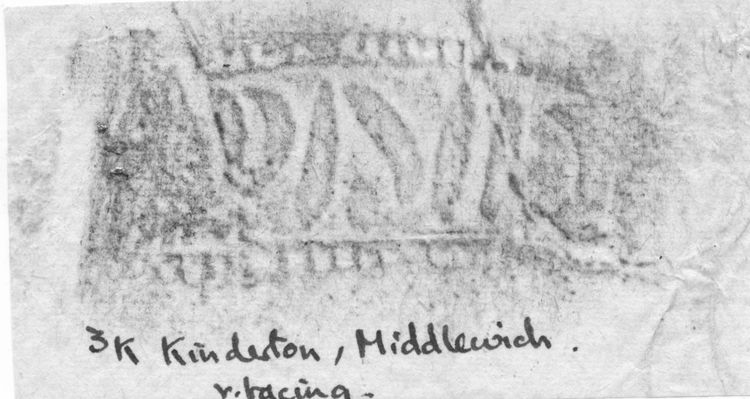 3K Kinderton, Middlewich.
r. facing.